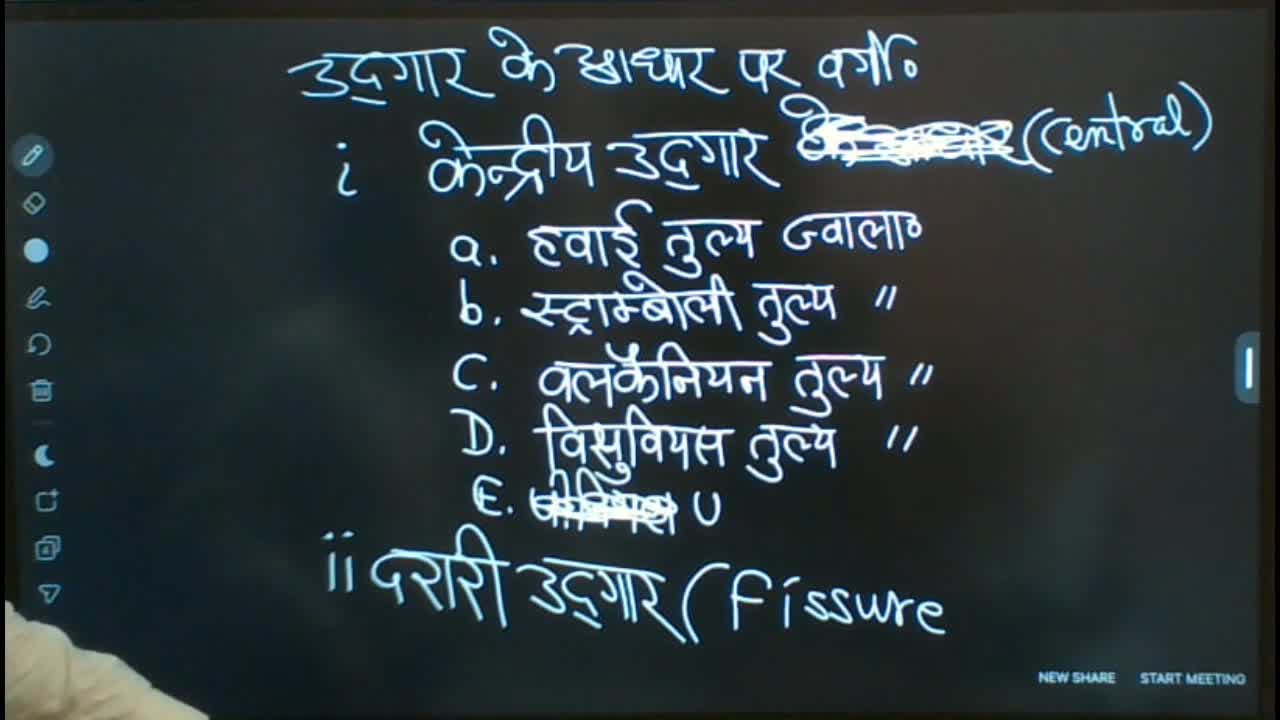 उद्गार के आधार पर वर्गी०
i केन्द्रीय उद्गार (Central)
a. हवाई तुल्य ज्वाला०
b. स्ट्राम्बोली तुल्य "
C. वलकैनियन तुल्य "
D. विसुवियस तुल्य "
E.
ii दरारी उद्गार (Fissure
NEW SHARE START MEETING